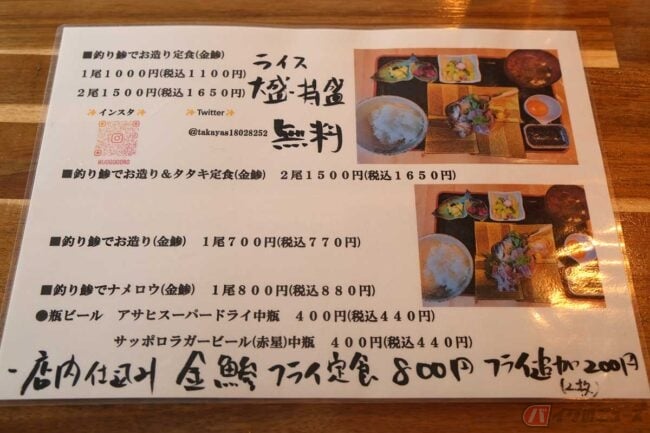 ■釣り鯵でお造り定食(金鯵)
1尾1000円(税込1100円)
2尾1500円(税込1650円)
ライス
大盛・特盛
無料
インスタ
Twitter
@takayas18028252
■釣り鯵でお造り&タタキ定食(金鯵) 2尾1500円(税込1650円)
■釣り鯵でお造り(金鯵) 1尾700円(税込770円)
■釣り鯵でナメロウ(金鯵) 1尾800円(税込880円)
●瓶ビール アサヒスーパードライ中瓶 400円(税込440円)
サッポロラガービール(赤星)中瓶 400円(税込440円)
-店内仕込み 金鯵 フライ定食 800円 フライ追加200円
(2枚)